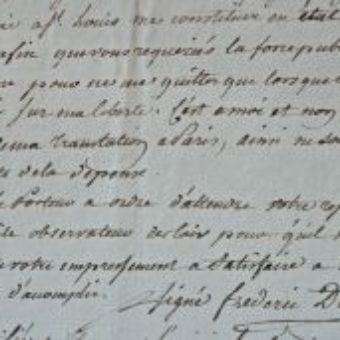 st. houis me constituer en état
afin que vous requeriés la force pub
pour ne me quitter que lorsque
sur ma liberté. C'est a moi et non
ma translation a Paris, ainsi ne so
de la depense.
Porteur a ordre d'attendre votre rep
observateur des loix pour qu'il
votre empressement a Satisfaire a
d'accomplir. Signé frederic D